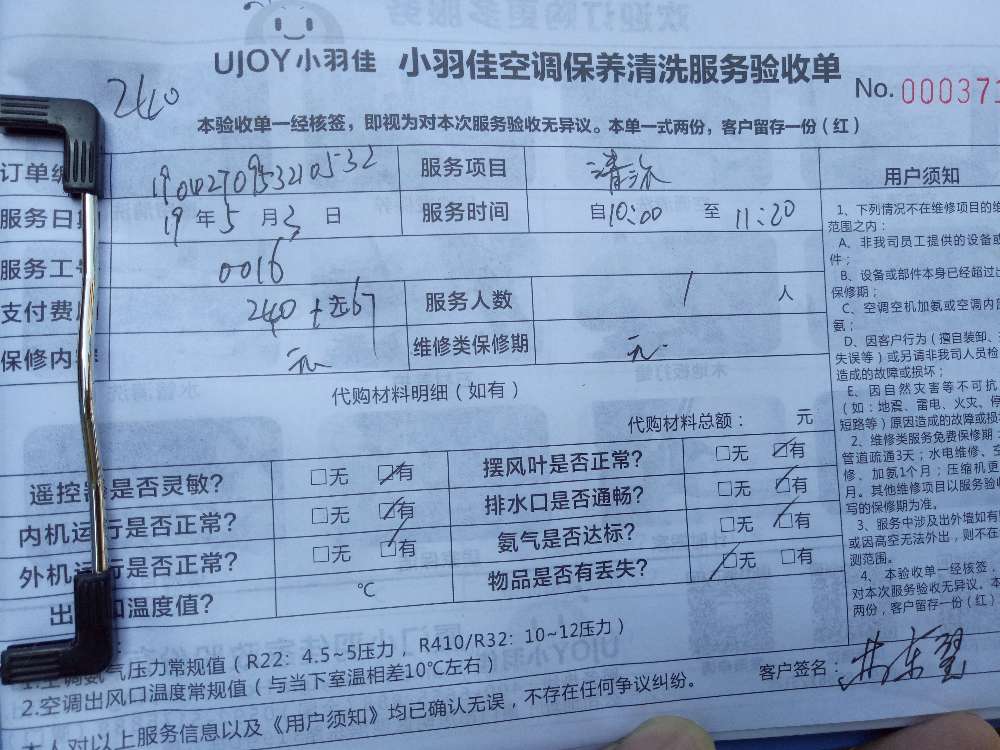 UJOY小羽佳 小羽佳空调保养清洗服务验收单
No. 000371
240
本验收单一经核签，即视为对本次服务验收无异议。本单一式两份，客户留存一份（红）
订单编 服务项目 清洗 用户须知
服务日期 19年5月3日 服务时间 自10:00 至 11:20
服务工号 0016
支付费用 240 服务人数 1 人
保修内容 无 维修类保修期 无
代购材料明细（如有）
代购材料总额： 元
遥控器是否灵敏？ □无 ☑有 摆风叶是否正常？ □无 ☑有
内机运行是否正常？ □无 ☑有 排水口是否通畅？ □无 ☑有
外机运行是否正常？ □无 ☑有 氨气是否达标？ □无 ☑有
出 口温度值？ ℃ 物品是否有丢失？ ☑无 □有
1、下列情况不在维修项目的维
范围之内：
A、非我司员工提供的设备或
件；
B、设备或部件本身已经超过出
保修期；
C、空调空机加氨或空调内
氨；
D、因客户行为（擅自装卸、
失误等）或另请非我司人员检
造成的故障或损坏；
E、因自然灾害等不可抗
（如:地震、雷电、火灾、停
短路等）原因造成的故障或损
2、维修类服务免费保修期：
管道疏通3天；水电维修、空
修、加氨1个月；压缩机更
月。其他维修项目以服务验收
写的保修期为准。
3、服务中涉及出外墙如有
或因高空无法外出，则不在
测范围。
4、本验收单一经核签，
对本次服务验收无异议。本
两份，客户留存一份（红）
1.空调氨气压力常规值（R22：4.5~5压力，R410/R32：10~12压力）
2.空调出风口温度常规值（与当下室温相差10℃左右）
客户签名：
本人对以上服务信息以及《用户须知》均已确认无误，不存在任何争议纠纷。